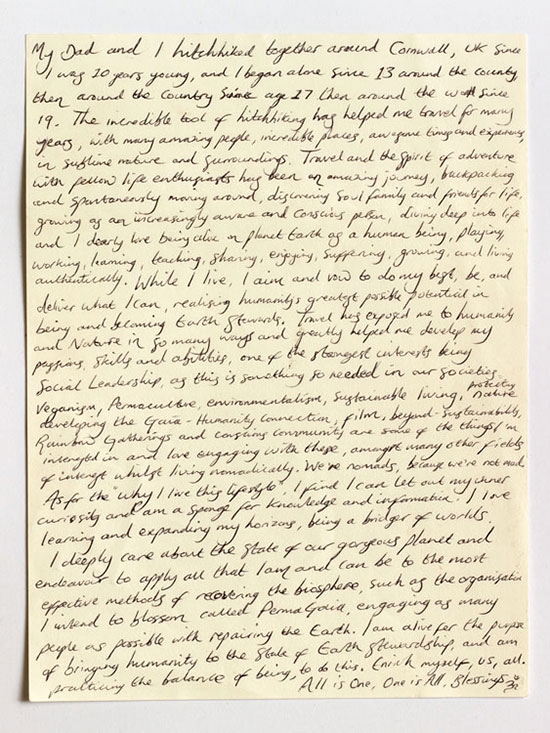 My Dad and I hitchhiked together around Cornwall, UK since
I was 10 years young, and I began alone since 13 around the county,
then around the Country since age 17 then around the world since
19. The incredible tool of hitchhiking has helped me travel for many
years, with many amazing people, incredible places, awesome times and experiences,
in sublime nature and surroundings. Travel and the spirit of adventure
with fellow life enthusiasts has been an amazing journey, backpacking
and spontaneously moving around, discovering Soul family and friends for life,
growing as an increasingly aware and conscious person, diving deep into life
and I dearly love being alive on planet Earth as a human being, playing,
working, learning, teaching, sharing, enjoying, suffering, growing, and living
authentically. While I live, I aim and vow to do my best, be, and
deliver what I can, realising humanity's greatest possible potential in
being and becoming Earth Stewards. Travel has exposed me to humanity
and Nature in so many ways and greatly helped me develop my
passions, skills and abilities, one of the strongest interests being
Social Leadership, as this is something so needed in our societies.
Veganism, Permaculture, environmentalism, sustainable living, protecting nature
developing the Gaia-Humanity Connection, film, beyond-sustainability,
Rainbow Gatherings and community are some of the things I'm
interested in and love engaging with these, amongst many other fields
of interest whilst living nomadically. We're nomads, because we're not mad.
As for the "why I live this lifestyle", I find I can let out my inner
curiosity and am a sponge for knowledge and information. I love
learning and expanding my horizons, being a bridger of worlds.
I deeply care about the state of our gorgeous planet and
endeavour to apply all that I am and can be to the most
effective methods of recovering the biosphere, such as the organisation
I intend to blossom called PermaGaia, engaging as many
people as possible with repairing the Earth. I am alive for the purpose
of bringing humanity to the state of Earth Stewardship, and am
practicing the balance of being, to do this. Enrich myself, us, all.
All is One, One is All, Blessings